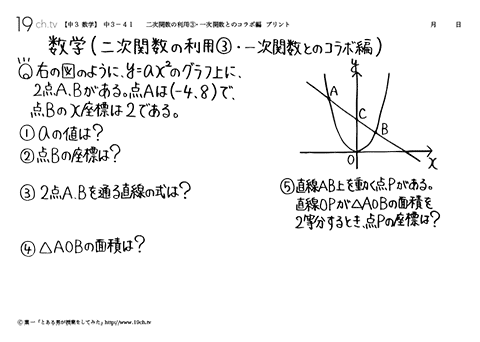 19ch.tv 【中3 数学】 中3-41 二次関数の利用③・一次関数とのコラボ編 プリント 月 日
数学(二次関数の利用③・一次関数とのコラボ編)
Q 右の図のように、y=ax²のグラフ上に、
2点A.Bがある。点Aは(-4,8)で、
点Bのx座標は2である。
①aの値は?
②点Bの座標は?
③2点A.Bを通る直線の式は?
④△AOBの面積は?
y
A
C
B
O
x
⑤直線AB上を動く点Pがある。
直線OPが△AOBの面積を
2等分するとき、点Pの座標は?
Ⓒ 葉一「とある男が授業をしてみた」http://www.19ch.tv